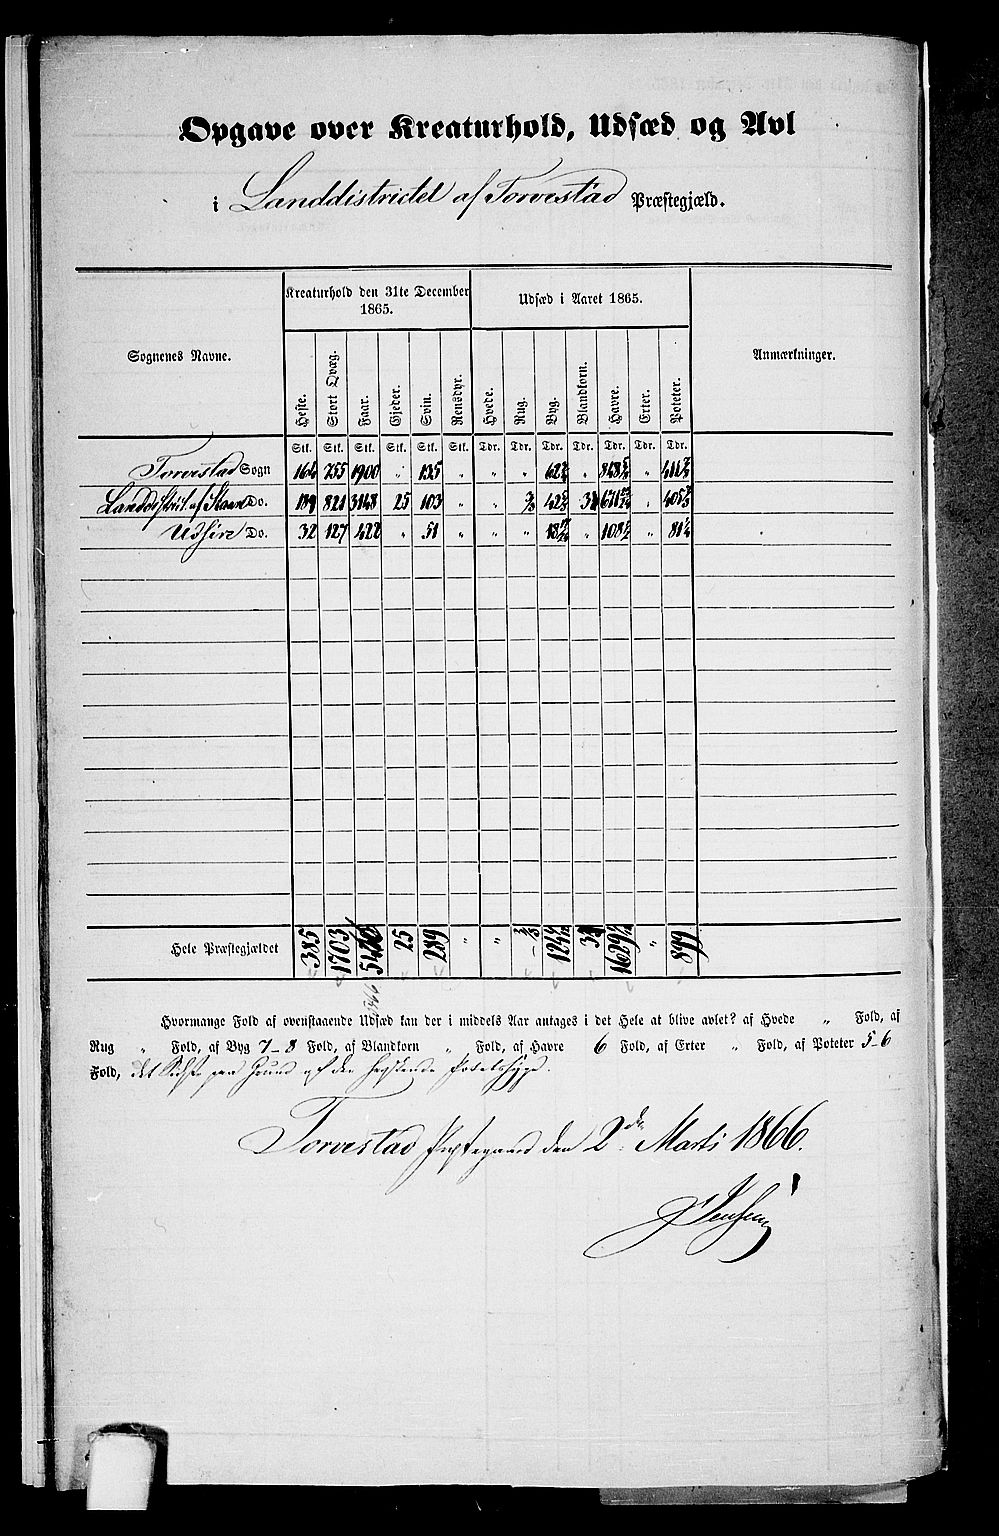 Opgave over Kreaturhold, Udsæd og Avl
i Landdistrictet af Torvestad Præstegjæld.
Sognenes Navne.
Kreaturhold den 31te December
1865.
Udsæd i Aaret 1865.
Anmærkninger.
Heste. Stort Qvæg. Faar. Gjeder. Svin. Rensdyr. Hvede. Rug. Byg. Blandkorn. Havre. Erter. Poteter.
Stk. Stk. Stk. Stk. Stk. Stk. Tdr. Tdr. Tdr. Tdr. Tdr. Tdr. Tdr.
Torvestad Sogn 164 755 1900 „ 135 „ „ „ „ „
Landdistrict. af Do. 189 821 3148 25 103 „ „ „
Udsire Do. 32 127 422 „ 51 „ „ „ „ 108½ „ 81¼
Hele Præstegjældet 385 1703 25 289 „ „ „ 899
Hvormange Fold af ovenstaaende Udsæd kan der i middels Aar antages i det Hele at blive avlet? af Hvede „ Fold, af
Rug „ Fold, af Byg 7-8 Fold, af Blandkorn „ Fold, af Havre 6 Fold, af Erter „ Fold, af Poteter 5-6
Fold, det Sidste paa Grund af den
Torvestad Præstegaard den 2de Marts 1866.